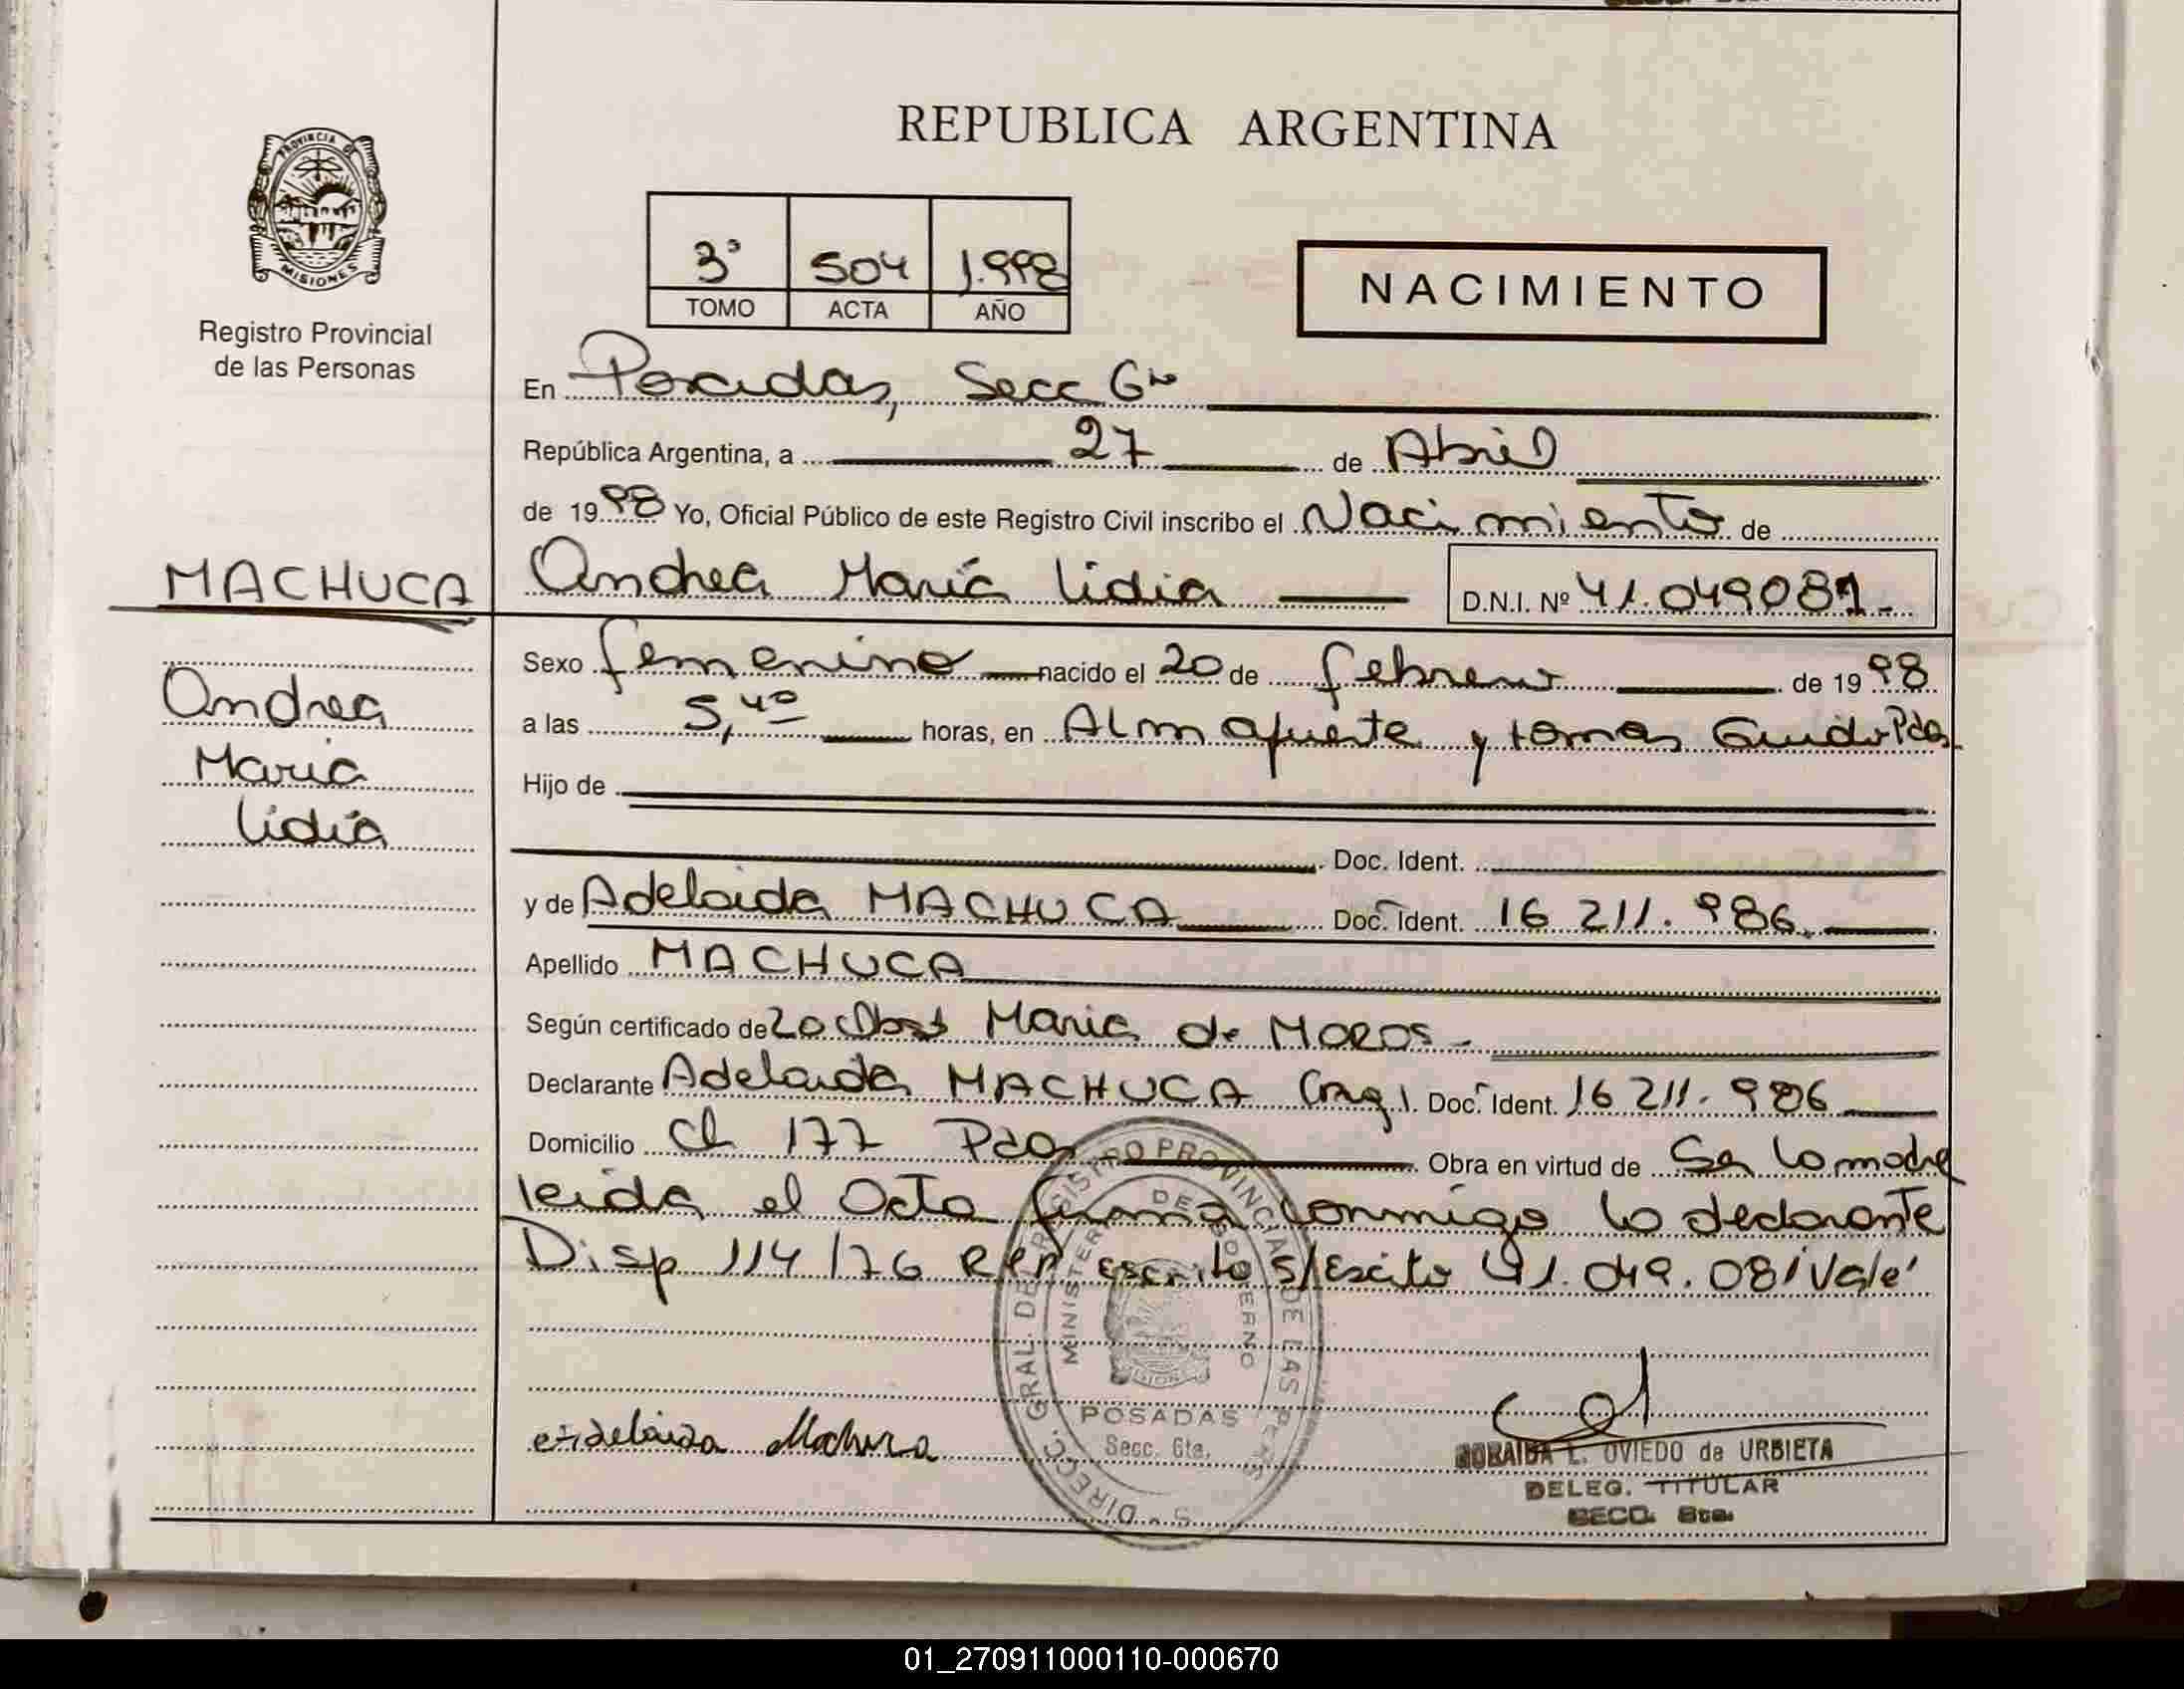 REPUBLICA ARGENTINA
PROVINCIA DE
MISIONES
Registro Provincial
de las Personas
3ª 504 1.998
TOMO ACTA AÑO
NACIMIENTO
En Posadas, Secc 6ta
República Argentina, a 27 de Abril
de 1998 Yo, Oficial Público de este Registro Civil inscribo el Nacimiento de
MACHUCA
Andrea María Lidia D.N.I. Nº 41.049081.-
Andrea
María
Lidia
Sexo femenino nacido el 20 de febrero de 1998
a las 5,40 horas, en Almafuerte y tomas Guido Pdas
Hijo de
Doc. Ident.
y de Adelaida MACHUCA Doc. Ident. 16 211. 986.
Apellido MACHUCA
Según certificado de la Obst Maria de MOROS.-
Declarante Adelaida MACHUCA (arg). Doc. Ident. 16 211. 986
Domicilio Ch 177 Pdas Obra en virtud de Ser la madre
leida el Acta firma conmigo la declarante
Disp 114/76 RPP escrito s/Escito 41.049.081 Vale'
DIREC. GRAL. DE REGISTRO PROVINCIAL DE LAS PERS
MINISTERIO DE GOBIERNO
MISIONES
POSADAS
Secc. 6ta.
Adelaida Machuca
NORAIDA L. OVIEDO de URBIETA
DELEG. TITULAR
SECC. 6ta.
01_270911000110-000670